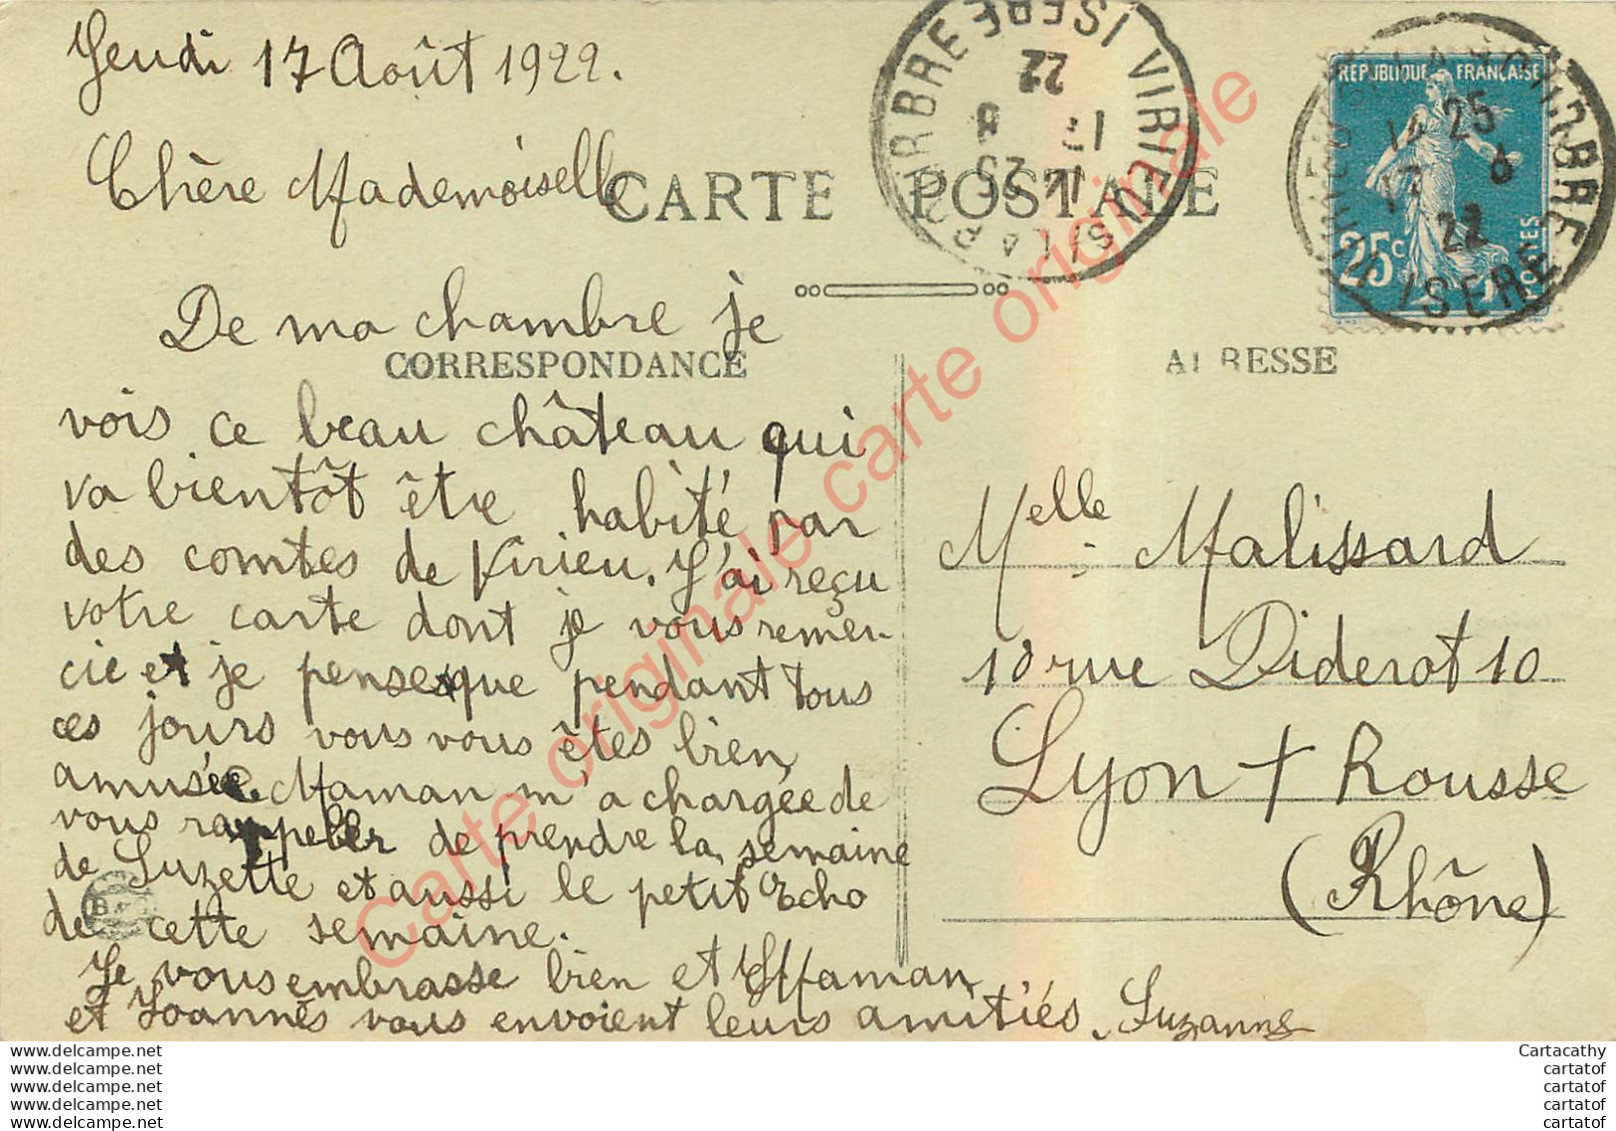 Jeudi 17 Août 1922.
Chère Mademoiselle
CARTE POSTALE
De ma chambre je
CORRESPONDANCE
vois ce beau château qui
va bientôt être habité par
des comtes de Virieu. J'ai reçu
votre carte dont je vous remer-
cie et je pense que pendant tous
ces jours vous vous êtes bien
amusée. Maman m'a chargée de
vous rappeler de prendre la semaine
de Suzette et aussi le petit Echo
de cette semaine.
Je vous embrasse bien et Maman
et Joannès vous envoient leurs amitiés. Suzanne
ADRESSE
Melle Malissard
10 rue Diderot 10
Lyon + Rousse
(Rhône)
VIRIEU S/ LA BOURBRE ISERE
14 25
17 8
22
REPUBLIQUE FRANÇAISE
25c
POSTES
VIRIEU S/ LA BOURBRE ISERE
14 25
17 8
22
Carte originale carte originale
www.delcampe.net
www.delcampe.net
www.delcampe.net
www.delcampe.net
www.delcampe.net
Cartacathy
cartatof
cartatof
cartatof
cartatof